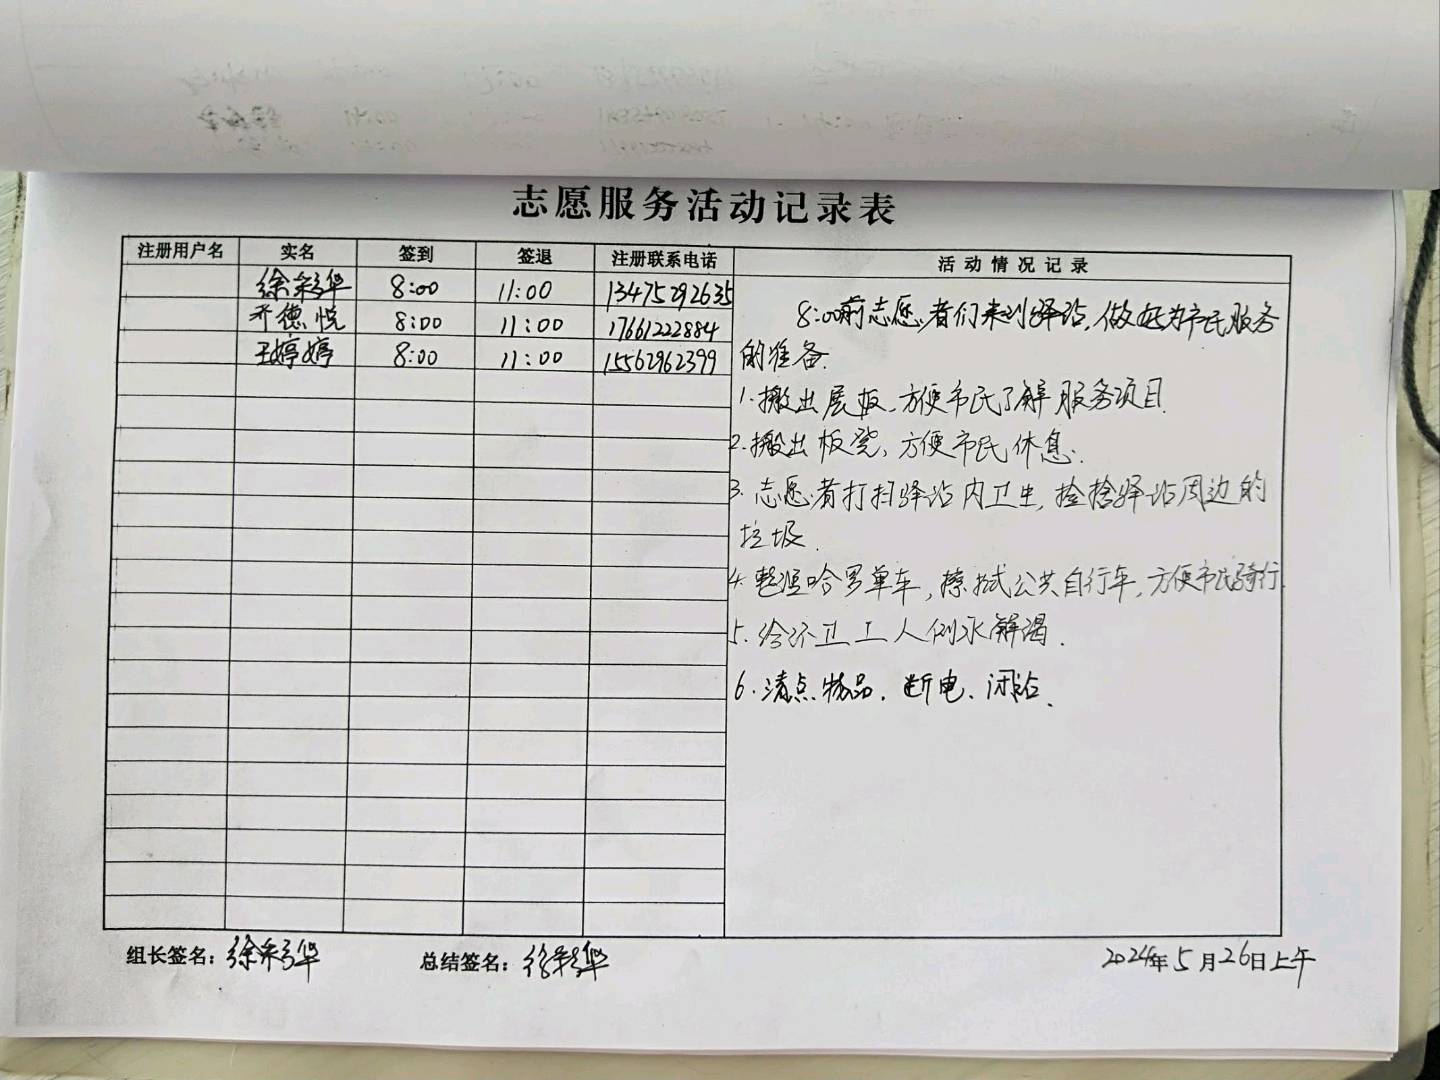 志愿服务活动记录表
注册用户名 实名 签到 签退 注册联系电话 活动情况记录
徐彩华 8:00 11:00 13475292635
乔德悦 8:00 11:00 17661222884
王婷婷 8:00 11:00 15562962399
8:00前志愿者们来到驿站,做好为市民服务
的准备.
1.搬出展板,方便市民了解服务项目.
2.搬出板凳,方便市民休息.
3.志愿者打扫驿站内卫生,捡拾驿站周边的
垃圾.
4.整理哈罗单车,擦拭公共自行车,方便市民骑行.
5.给环卫工人倒水解渴.
6.清点物品、断电、闭站.
组长签名:徐彩华 总结签名:徐彩华 2024年5月26日上午